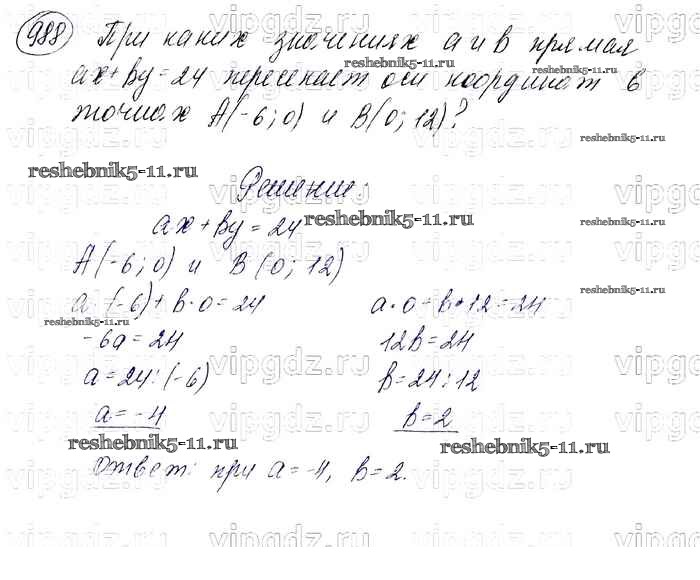 988 При каких значениях a и b прямая
ax + by = 24 пересекает оси координат в
точках A(-6; 0) и B(0; 12)?
Решение:
ax + by = 24
A(-6; 0) и B(0; 12)
a·(-6) + b·0 = 24
a·0 + b·12 = 24
-6a = 24
12b = 24
a = 24 : (-6)
b = 24 : 12
a = -4
b = 2
Ответ: при a = -4, b = 2.
reshebnik5-11.ru
reshebnik5-11.ru
reshebnik5-11.ru
reshebnik5-11.ru
reshebnik5-11.ru
reshebnik5-11.ru
reshebnik5-11.ru
vipgdz.ru